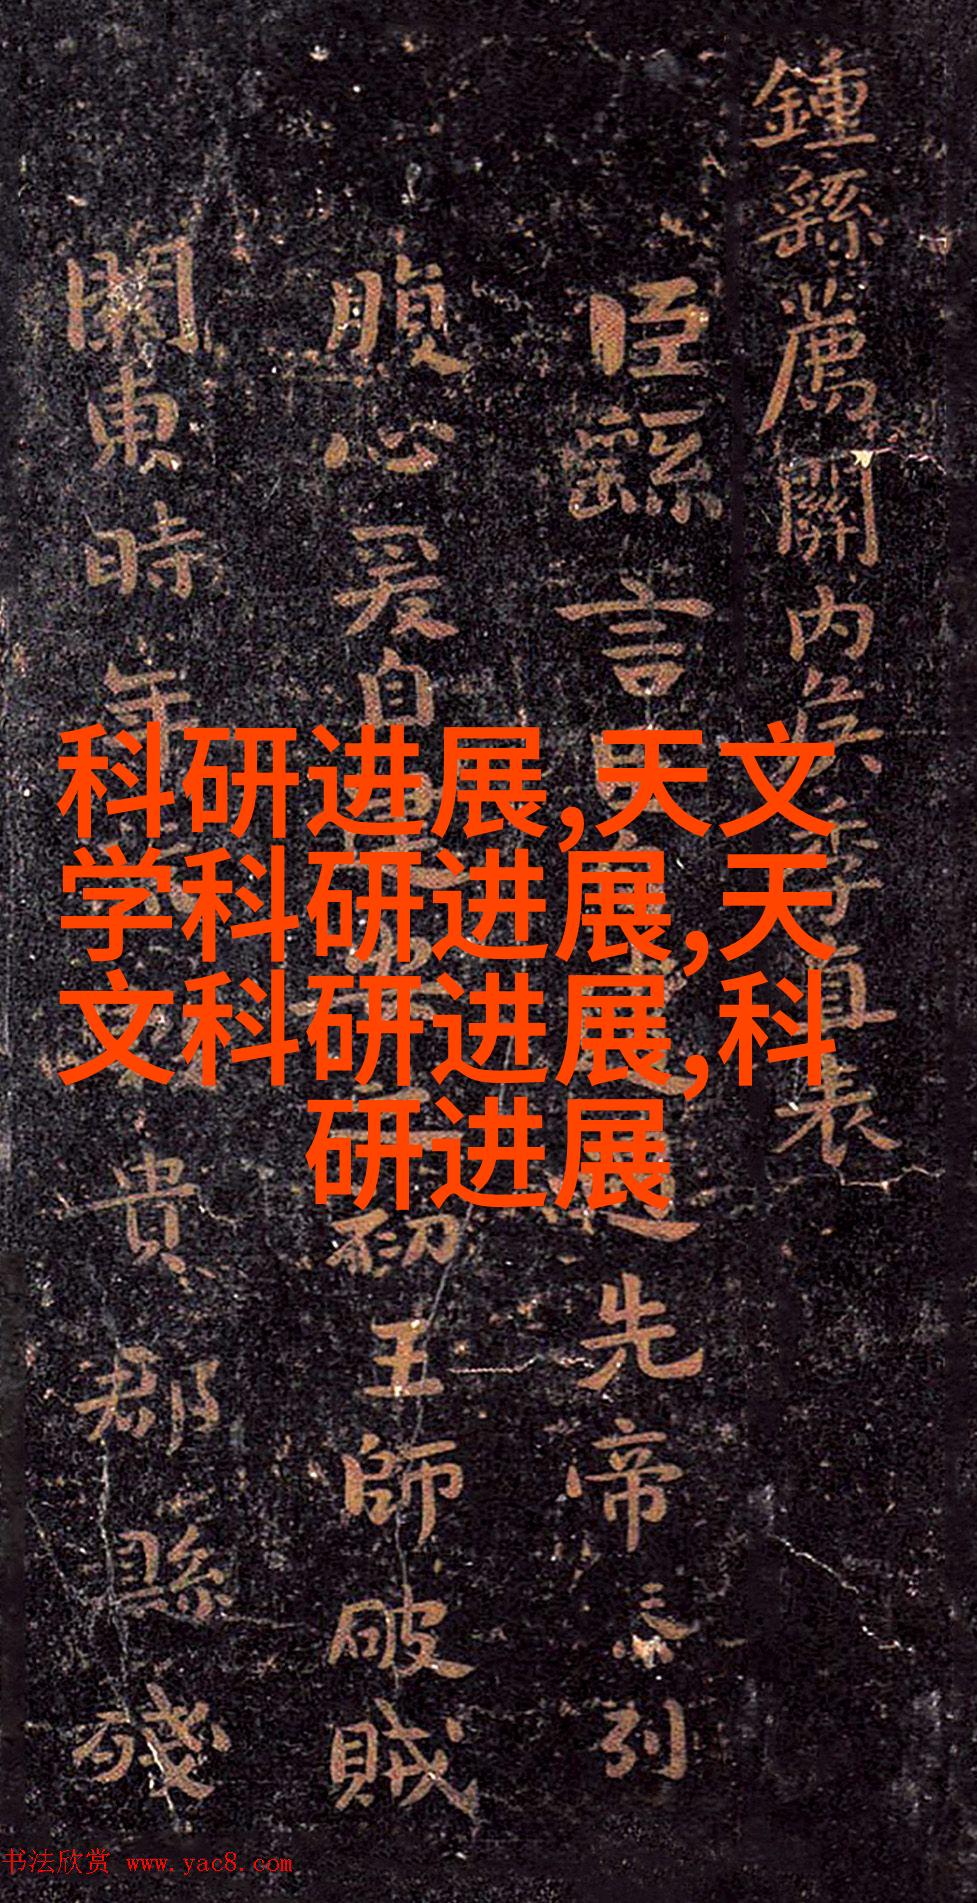 鍾繇薦關内侯季直表
臣繇言先帝忝列
腹心爰自初王師破賊
關東時年貴郡縣殘
科研进展,天文
学科研进展,天
文科研进展,科
研进展
书法欣赏 www.yac8.com